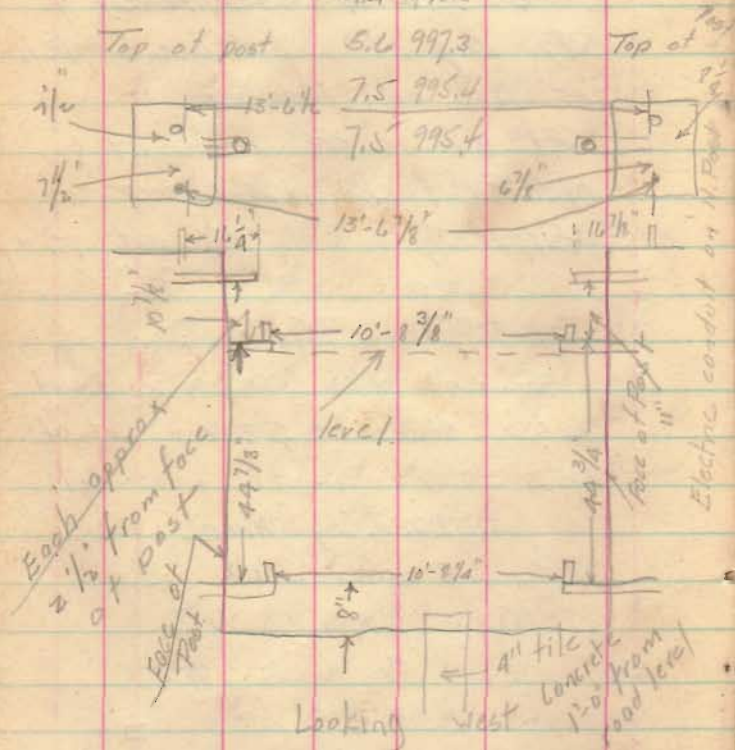 5.6 997.3
Top of post
Top of Post
7.5 995.4
7.5 995.4
13'-6½
7½"
6⅞"
13'-6⅞"
16¼"
16⅞"
10⅞"
10'-8⅜"
level.
Each approx
2½" from face
of post
44⅞"
44¾"
Face of Post
11"
Electric conduit on N. Post
Face of
Post
8"
4" tile
Concrete
1'-0" from
road level
Looking West